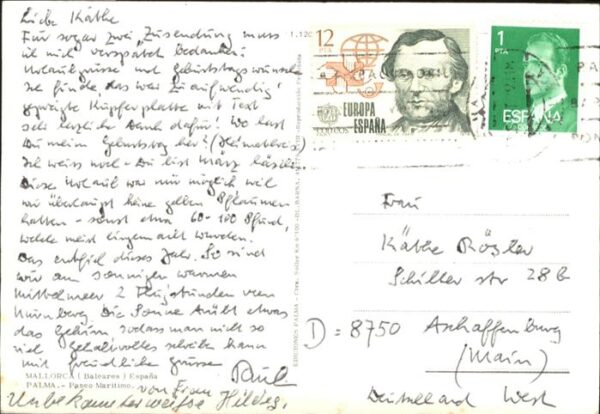 Liebe Käthe
Für sogar zwei Zusendung muss
ich mich verspätet bedanken!
Urlaubsgrüsse und Geburtstagswünsche
Ich finde das war zu aufwendig!
geprägte Kupferplatte mit Text
sehr herzliche Dank dafür! Wo hast
Du mein Geburtstag her?
Ich weiss noch - Du bist März
Diese Urlaub war nur möglich weil
wir überhaupt keine gelben Pflaumen
hatten - sonst etwa 60-100 Pfund,
welche meist eingemacht wurden.
Das entfiel dieses Jahr. So sind
wir am sonnigen warmen
Mittelmeer 2 Flugstunden von
Nürnberg. Die Sonne etwas
das Gehirn sodass man nicht so
viel Gehaltvolles schreiben kann
mit freundliche Grüsse
Paul
von Frau
Unbekannterweise Hildeg.
MALLORCA (Baleares) España
PALMA.- Paseo Marítimo.
EDICIONES PALMA
12
PTA
EUROPA
ESPAÑA
CORREOS
1
PTA
ESPAÑA
PALMA
Frau
Käthe Rösler
Schiller str 28b
D = 8750 Aschaffenburg
(Main)
Deutschland West